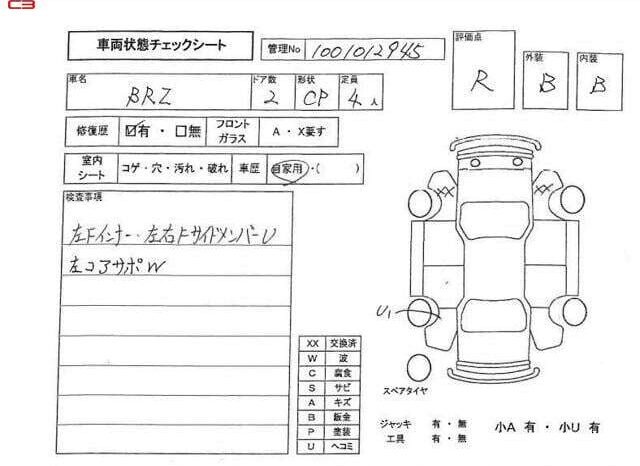 C3
車両状態チェックシート
管理No 1001012945
評価点 R
外装 B
内装 B
車名 BRZ
ドア数 2
形状 CP
定員 4 人
修復歴 ☑有・□無
フロントガラス A・X要す
室内シート コゲ・穴・汚れ・破れ
車歴 自家用・( )
検査事項
左Fインナー・左右FサイドメンバーU
左コアサポW
XX
XX
U1
XX 交換済
W 波
C 腐食
S サビ
A キズ
B 鈑金
P 塗装
U ヘコミ
スペアタイヤ
ジャッキ 有・無
工具 有・無
小A 有・小U 有